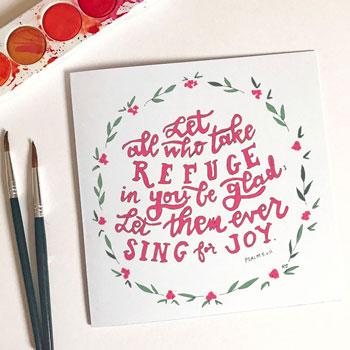 Let
all who take
REFUGE
in you be glad;
Let them ever
SING for JOY.
PSALM 5:11